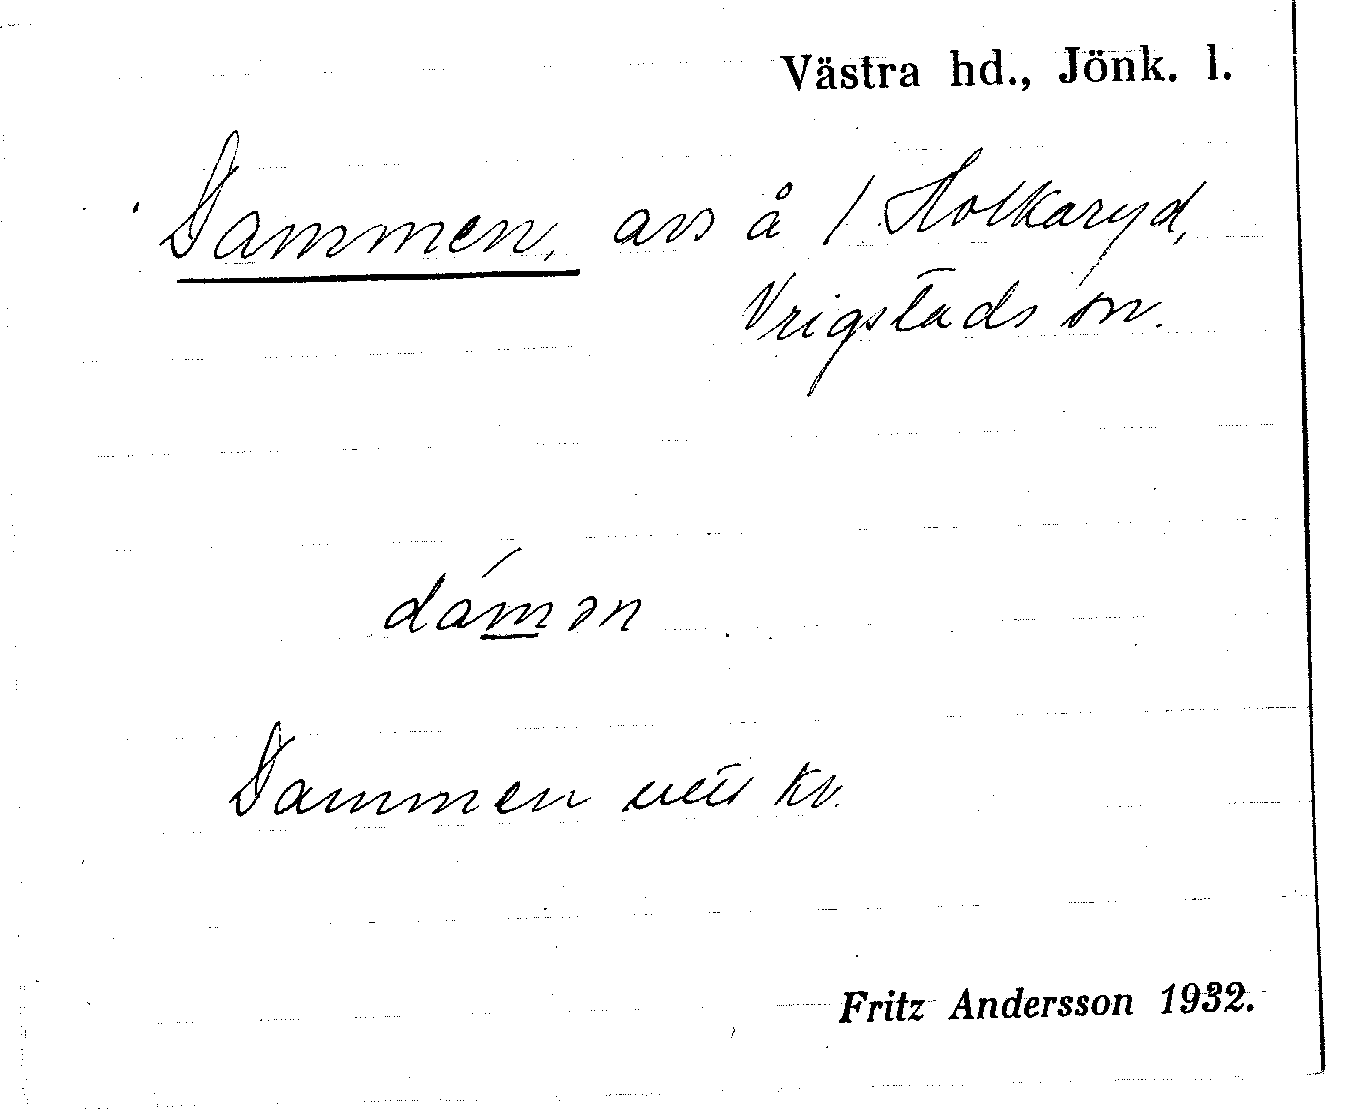 Västra hd., Jönk. l.
Dammen, avs å / Holkaryd,
Vrigstads sn.
dámən
Dammen vid kv.
Fritz Andersson 1932.